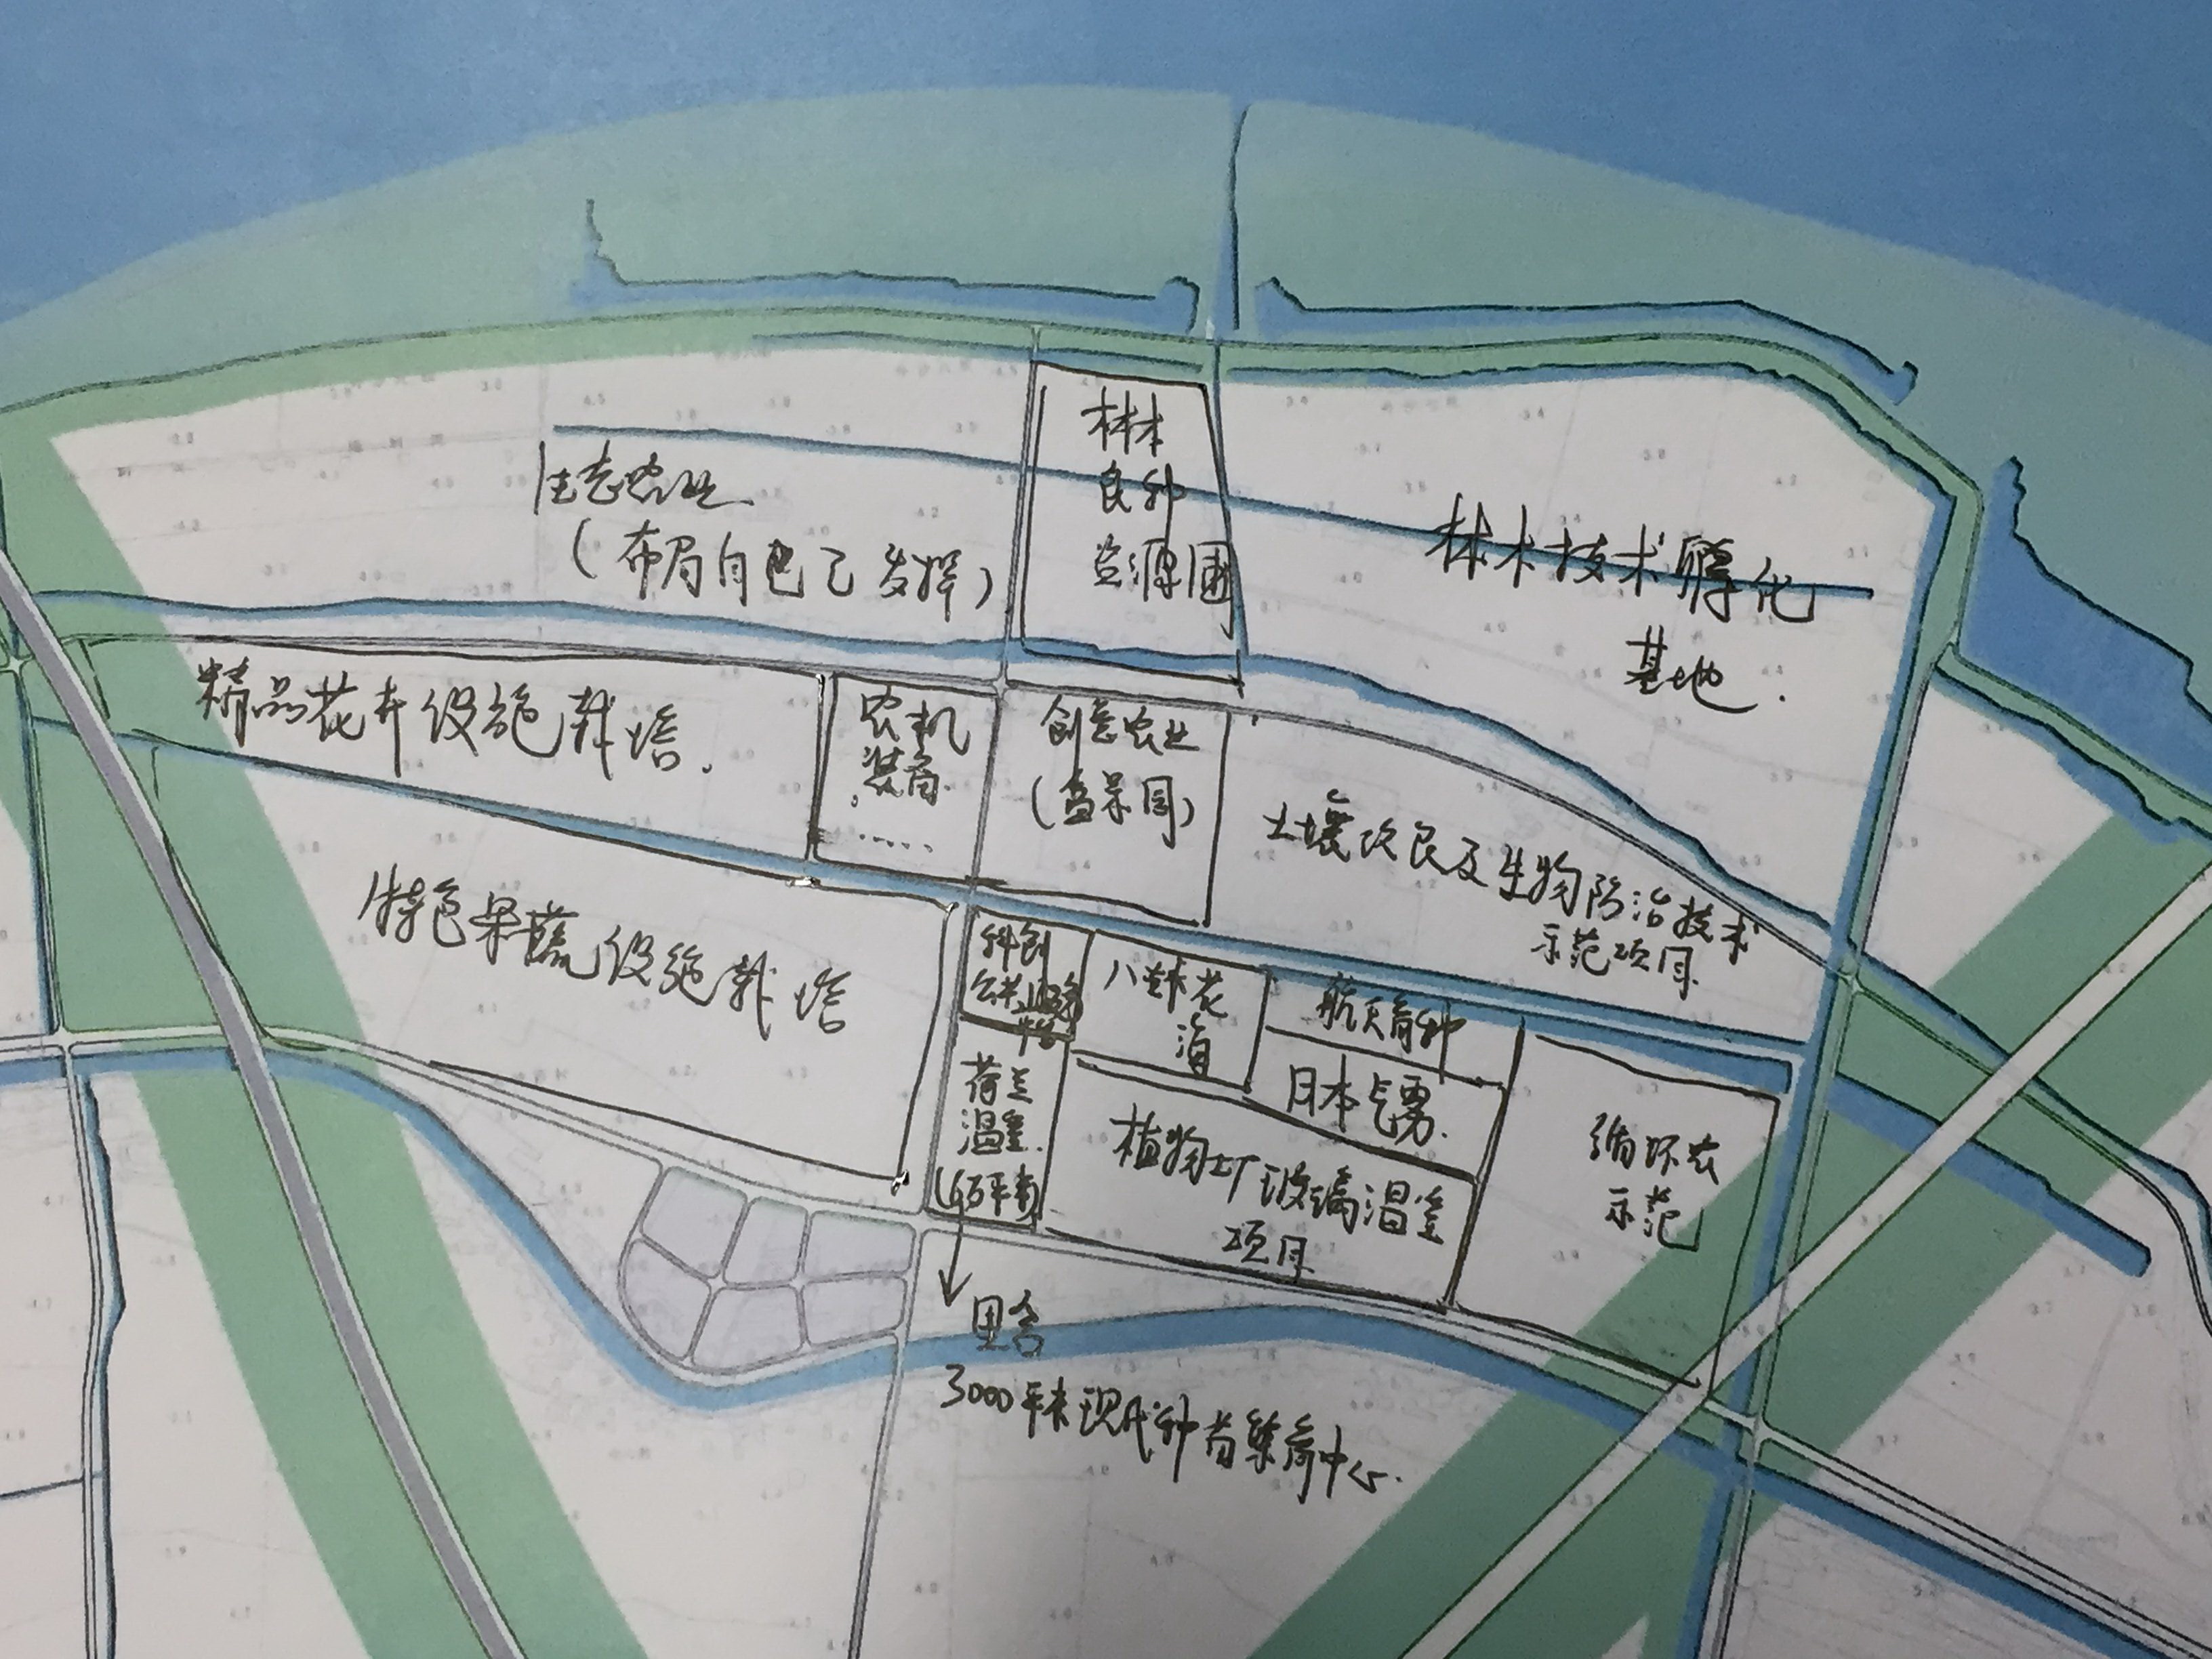 林木
良种
资源圃
生态农业
(布局自己发挥)
林木技术孵化
基地.
精品花卉设施栽培.
农机
装备
.....
创意农业
(盆景园)
土壤改良及生物防治技术
示范项目
特色果蔬设施栽培
科创
八卦花
海
航天育种
日本气雾.
荷兰
温室.
(6万平方)
植物工厂玻璃温室
项目
循环农
示范
3000平米现代种苗繁育中心.